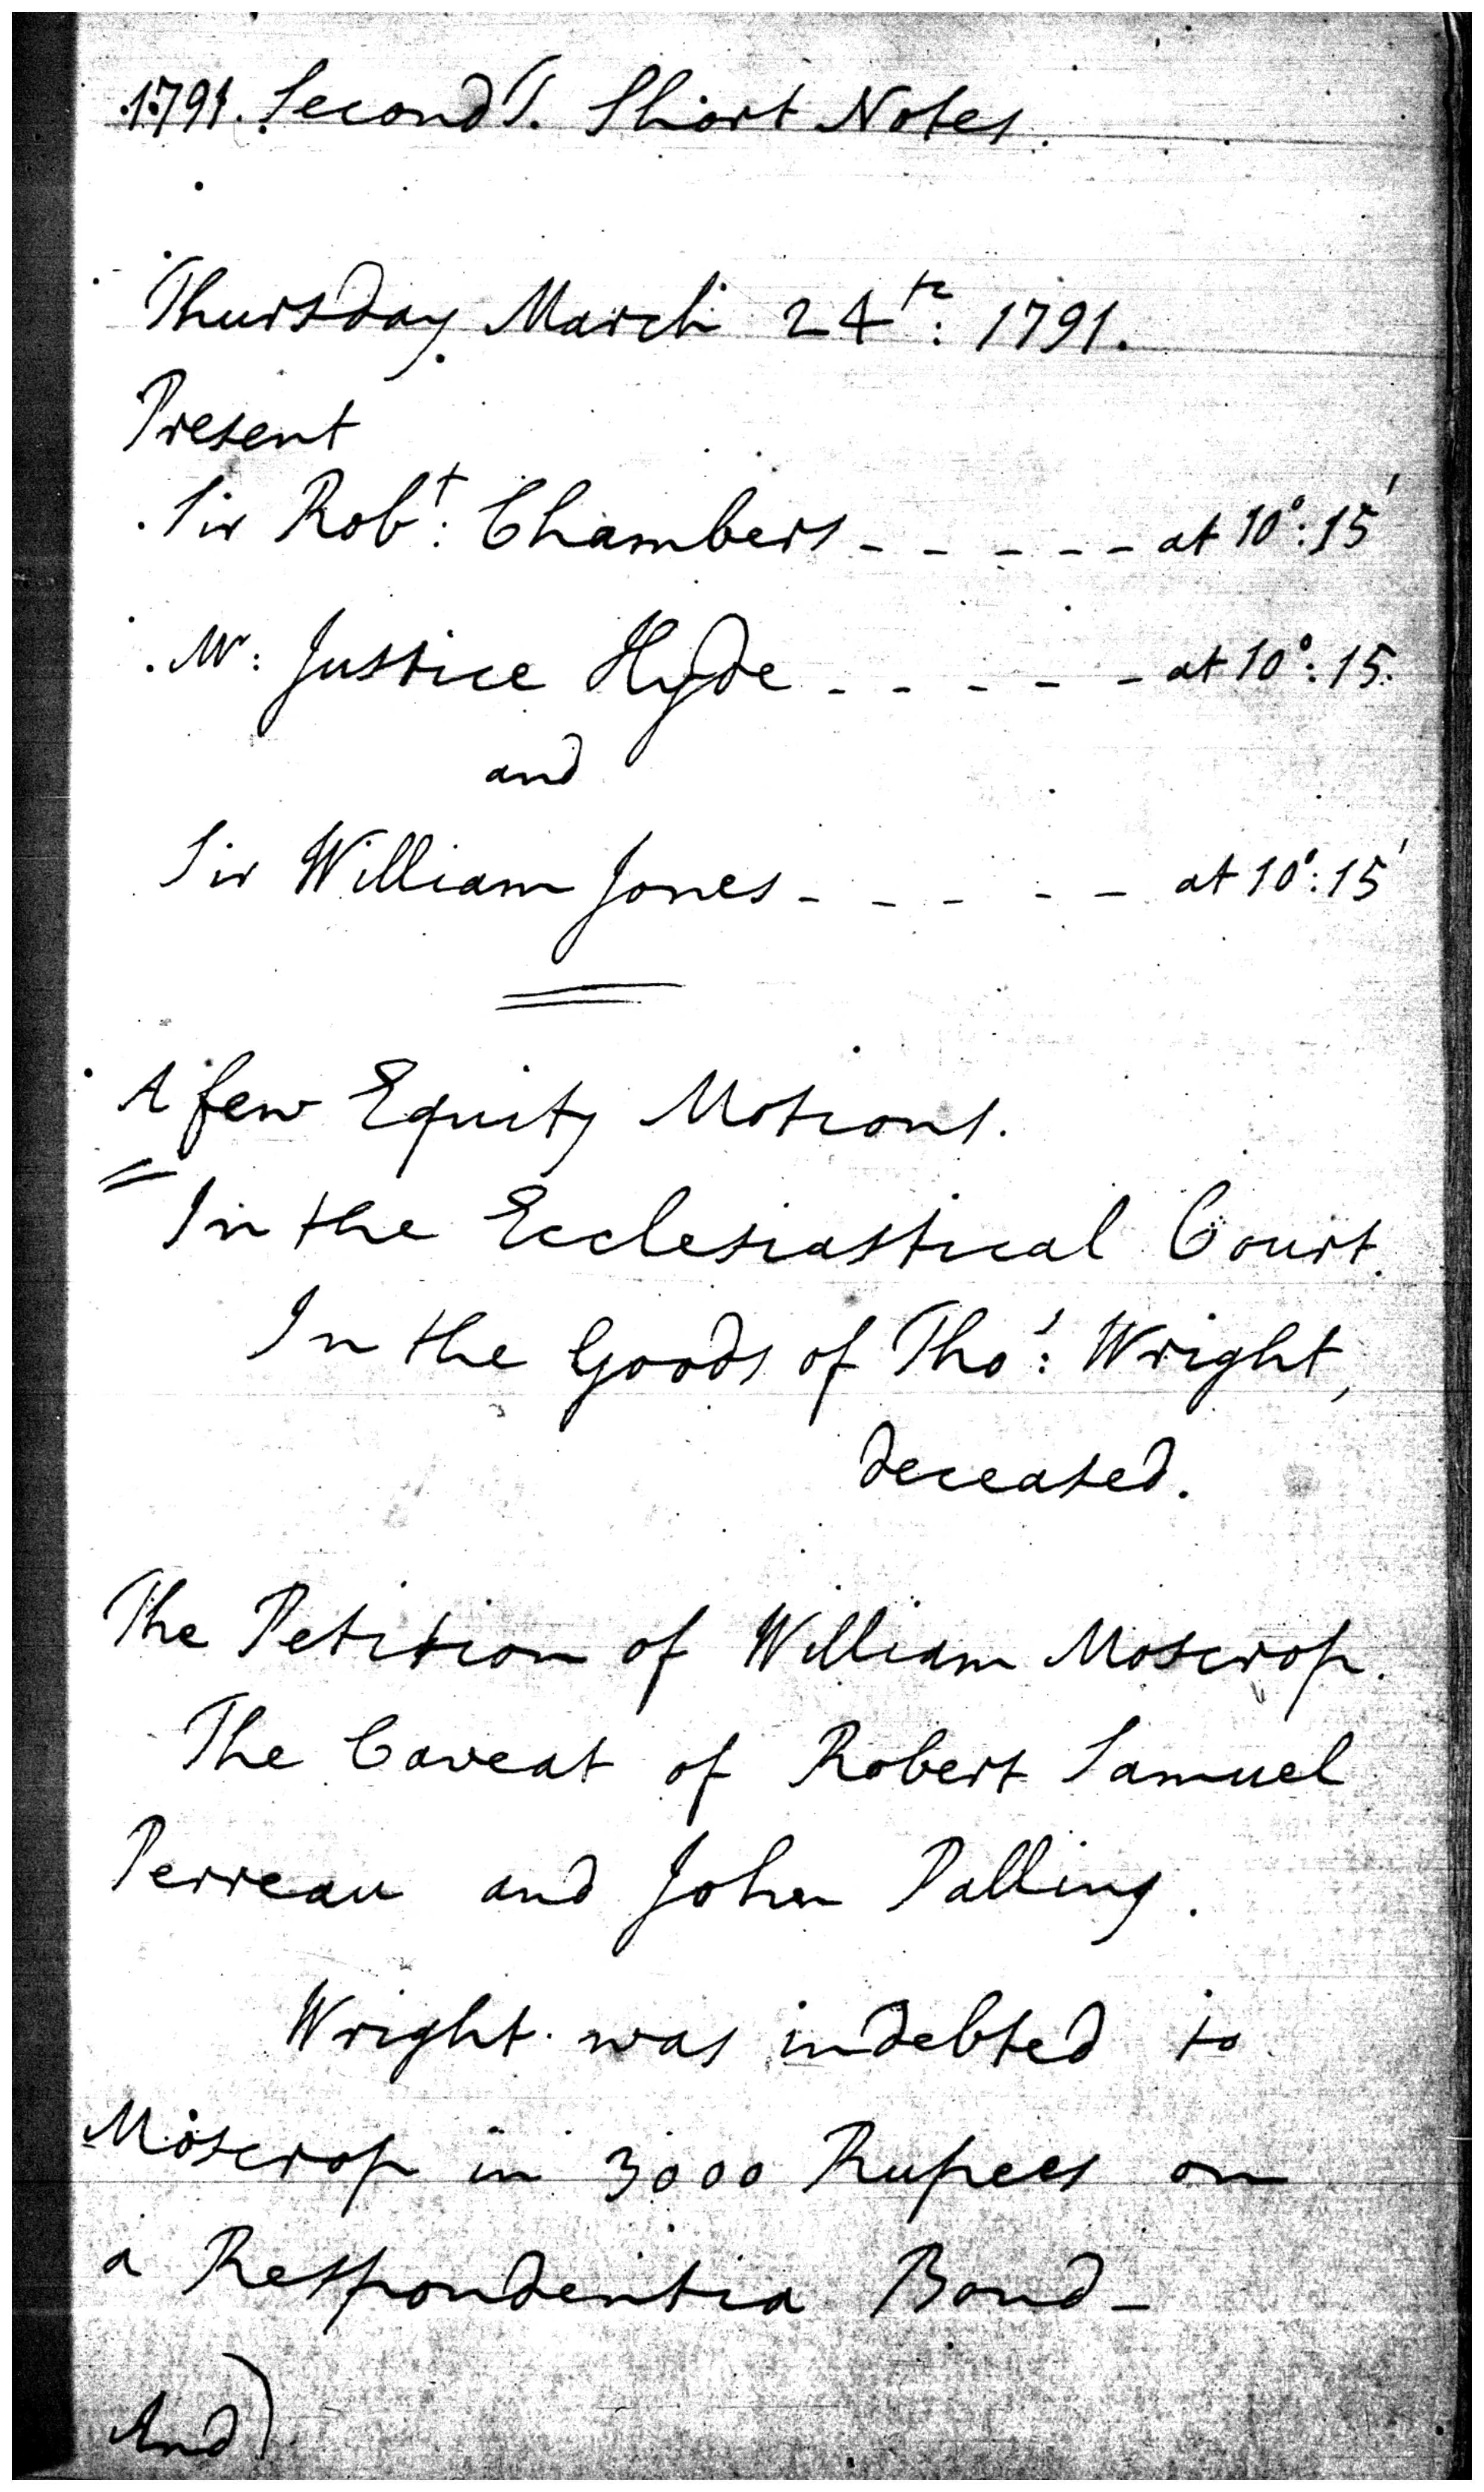 1791. Second T. Short Notes.
Thursday March 24th: 1791.
Present
Sir Robt: Chambers - - - - - at 10°: 15'
Mr: Justice Hyde - - - - - at 10°: 15'
and
Sir William Jones - - - - - at 10°: 15'
A few Equity Motions.
In the Ecclesiastical Court.
In the Goods of Thos: Wright,
deceased.
The Petition of William Moscrop.
The Caveat of Robert Samuel
Perreau and John Palling.
Wright was indebted to
Moscrop in 3000 Rupees on
a Respondentia Bond -
And)